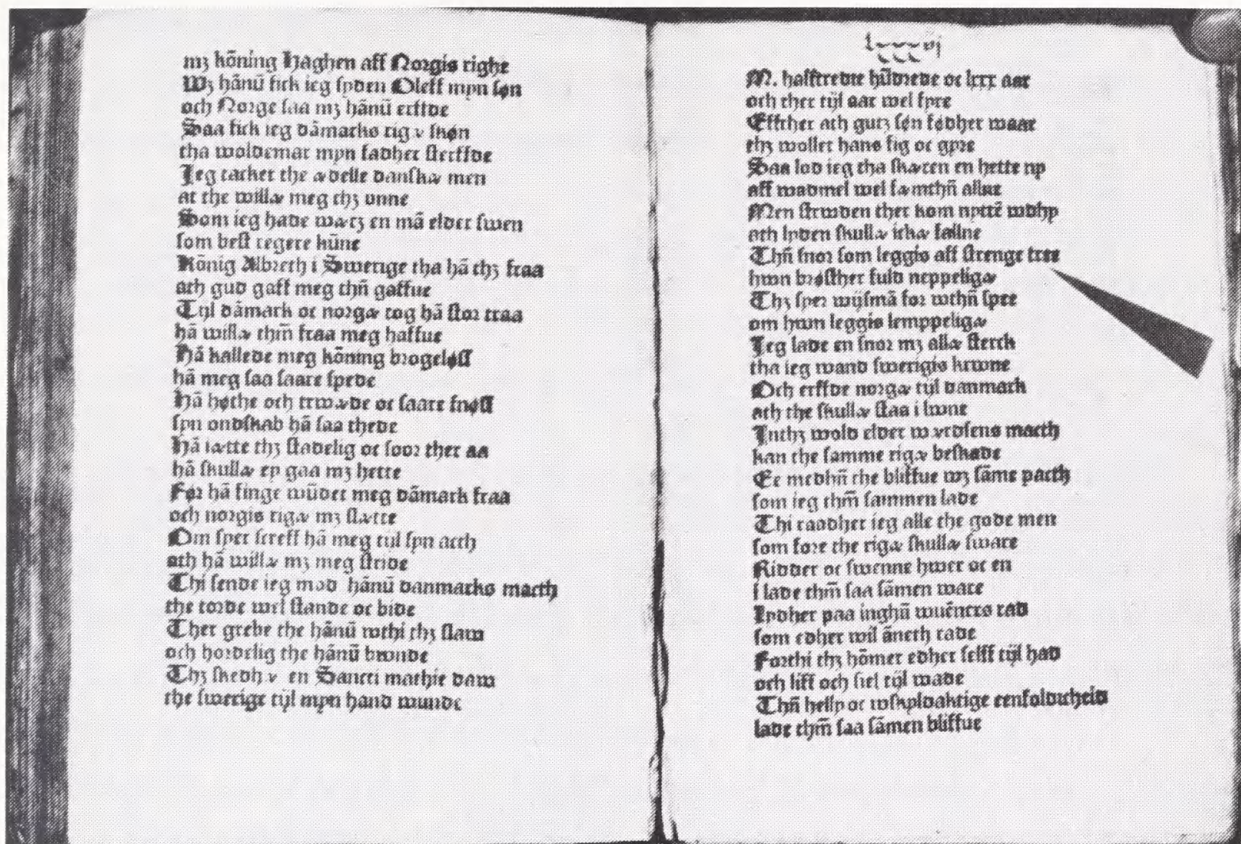 mʒ kōning Haghen aff Norgis righe
Wʒ hānū fick ieg syden Oleff myn søn
och Norge saa mʒ hānū erffde
Saa fick ieg dāmarks rigæ skøn
tha woldemar myn fadher sterffde
Jeg tacker the ædelle danskæ men
at the willæ meg thʒ onne
Som ieg hade wætʒ en mā elder swen
som best regere kūne
Kōnig Albreth i Swerige tha hā thʒ fraa
ath gud gaff meg thñ gaffue
Tijl dāmark oc norgæ tog hā stor traa
hā willæ thm̄ fraa meg haffue
Hā kallede meg kōning brogeløss
hā meg saa saare spede
Hā høthe och trwæde oc saare snøss
syn ondskab hā saa thede
Hā iætte thʒ stadelig oc soor ther aa
hā skullæ ey gaa mʒ hette
Før hā finge wūdet meg dāmark fraa
och norgis rigæ mʒ slætte
Om sper screff hā meg tijl syn acth
ath hā willæ mʒ meg stride
Thi sende ieg mod hānū danmarks macth
the torde wel stande oc bide
Ther grebe the hānū wthi thʒ slaw
och hordelig the hānū bwnde
Thʒ skedhæ en Sancti mathie daw
the swerige tijl myn hand wunde
M. halfftredie hūdrede oc lxxx aar
och ther tijl aar wel fyre
Effther ath gutʒ søn fødher waar
thʒ wollet hans sig oc gyre
Saa lod ieg tha skæren en hette ny
aff wadmel wel sæmthñ allne
Men strwden ther kom nyttē wdhy
ath lyden skullæ ickæ fallne
Thñ snor som leggis aff strenge tree
hwn brøsther fuld neppeligæ
Thʒ sper wijsmā for wthñ spee
om hwn leggis lemppeligæ
Jeg lade en snor mʒ allæ sterck
tha ieg wand swerigis krwne
Och erffde norgæ tijl danmark
ath the skullæ staa i lwne
Inthʒ wold elder wærdsens macth
kan the samme rigæ beskade
Ee medhñ the bliffue wʒ sāme pacth
som ieg thm̄ sammen lade
Thi raadher ieg alle the gode men
som fore the rigæ skullæ sware
Ridder oc swenne hwer oc en
i lade thm̄ saa sāmen ware
Lydher paa inghū wuēners rad
som edher wil āneth rade
Forthi thʒ kōmer edher selff tijl had
och liff och siel tijl wade
Thñ hellp oc wskyldaktige eenfoldicheid
lade thm̄ saa sāmen bliffue